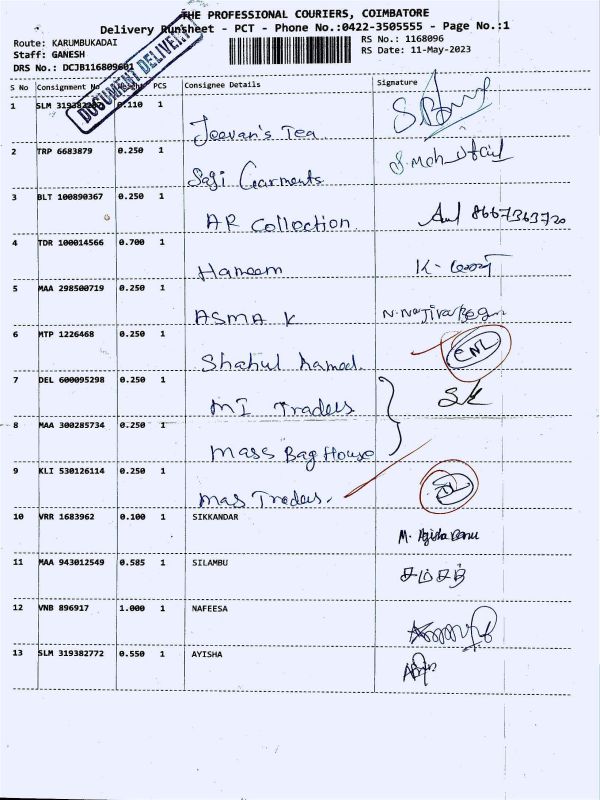 THE PROFESSIONAL COURIERS, COIMBATORE
Delivery Runsheet - PCT - Phone No.:0422-3505555 - Page No.:1
Route: KARUMBUKADAI
RS No.: 1168096
Staff: GANESH
RS Date: 11-May-2023
DRS No.: DCJB116809601
DOCUMENT DELIVERY
S No Consignment No Weight PCS Consignee Details Signature
1 SLM 0.110 1 Jeevan's Tea
2 TRP 6683879 0.250 1 Saji Garments
3 BLT 100890367 0.250 1 AR Collection 8667363720
4 TDR 100014566 0.700 1 Haneem K-
5 MAA 298500719 0.250 1 ASMA K N. Najira Begn
6 MTP 1226468 0.250 1 Shahul
7 DEL 600095298 0.250 1 MI Traders SK
8 MAA 300285734 0.250 1 Mass Bag House
9 KLI 530126114 0.250 1 Mas Traders.
10 VRR 1683962 0.100 1 SIKKANDAR M.
11 MAA 943012549 0.585 1 SILAMBU
12 VNB 896917 1.000 1 NAFEESA
13 SLM 319382772 0.550 1 AYISHA